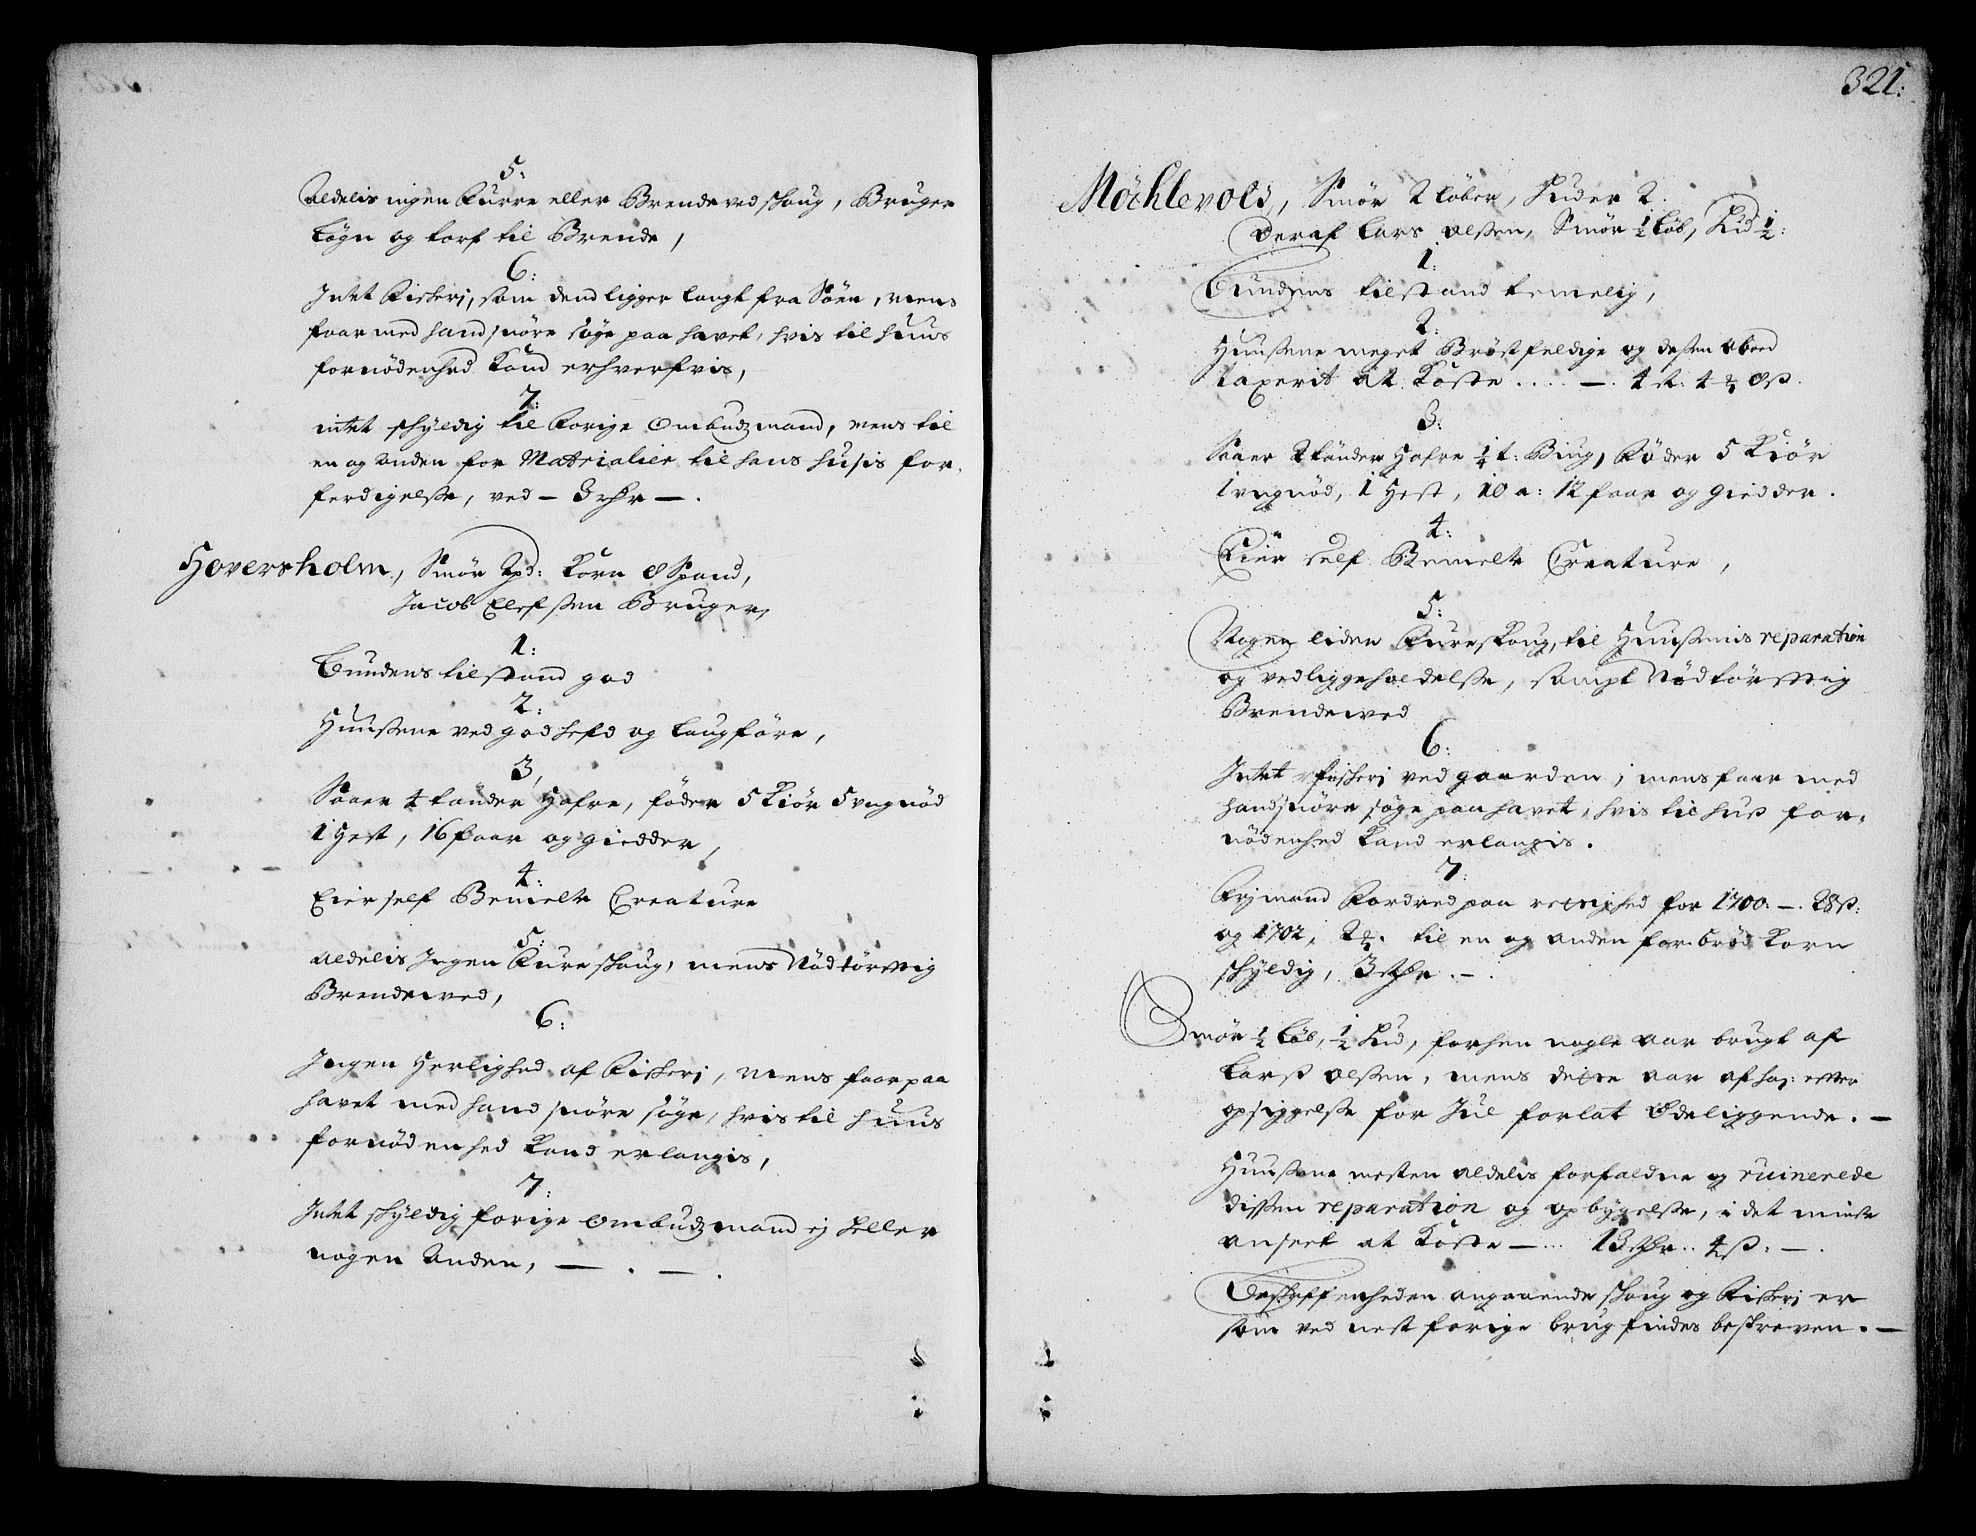 5:
Aldelis ingen Furre eller Brendeved skoug, Bruger
Løgn og torf til Brende,
6:
Intet Fiskeri, som dend ligger langt fra Søen, mens
faar med hand snøre søge paa havet, hvis til huus
fornødenhed kand erhverfvis,
7:
intet skyldig til Forige Ombudzmand, mens til
en og anden for Matrialier til hans husis for-
ferdigelsse, ved – 3 rdr – .
Hoversholm, Smør 2 pd: Korn 8 Spand,
Jacob Elefssen Bruger,
1:
Bundens tilstand god
2:
Huussene ved god hefd og laugføre,
3,
Saaer 4 tønder Hafre, føder 5 Kiør 5 ungnød
1 Hest, 16 faar og giedder,
4:
Eier self Bemelte Creature
5:
Aldelis Ingen Fure skoug, mens Nødtørfftig
Brendeved,
6:
Ingen Herlighed af Fiskeri, mens faar paa
havet med hand snøre søge, hvis til huus
fornødenhed kand erlangis,
7:
Intet skyldig forige Ombudzmand ej heller
nogen Anden, — . — .
321:
Møchlevold, Smør 2 Løber, Huder 2.
Deraf Lars Olssen, Smør ½ Løb, Hud ½:
1:
Bundens tilstand temelig,
2:
Huussene meget Brøstfeldige og dessen Aboed
taxerit at Koste .... —. 4 rdr. 4 ⅔ 8 ß.
3:
Saaer 2 tønder Hafre ¼ t: Biug, Føder 5 Kiør
1 ungnød, 1 Hest, 10 a: 12 faar og giedder.
4:
Eier self Bemelte Creature,
5:
Nogen liden Fureskoug, til Huussenis reparation
og vedligeholdelsse, sampt Nødtørfftig
Brendeved
6:
Intet fiskeri ved gaarden, mens faar med
handsnøre søge paa havet, hvis til huus for-
nødenhed kand erlangis.
7:
Frimand Fordred paa rettighed for 1700. –. 28 ß:
og 1702, 2 til en og anden for brød Korn
skyldig, 3 rdr. – .
Smør ½ Løb, ½ Hud, forhen nogle aar brugt af
Larss Olssen, mens dette aar af ham efter
opsiggelsse for Jul forlat Ødeliggende. –
Huussene mesten aldelis forfaldne og ruinerede
dissen reparation og opbygelsse, i det minste
anseet at Koste – ... 13 rdr .. 4 ß. – .
Beskaffenheden angaaende skoug og Fiskeri er
som ved nest forige brug findes beskreven. –